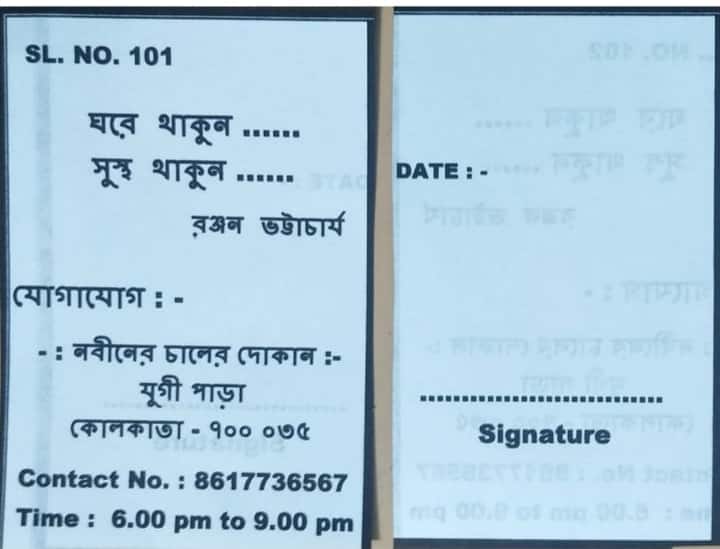 SL. NO. 101
ঘরে থাকুন ......
সুস্থ থাকুন ......
রঞ্জন ভট্টাচার্য
যোগাযোগ : -
- : নবীনের চালের দোকান :-
যুগী পাড়া
কোলকাতা - ৭০০ ০৩৫
Contact No. : 8617736567
Time : 6.00 pm to 9.00 pm
DATE : -
..............................
Signature